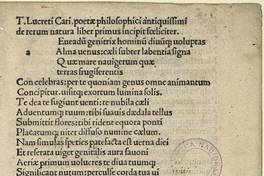 T. Lucreti Cari. poetæ philosophici antiquissimi
de rerum natura liber primus incipit fœliciter.
Eneadū genitrix hominū diuūq; uoluptas
a Alma uenus: cæli subter labentia signa
Quæ mare nauigerum quæ
terras frugiferentis
Concelebras: per te quoniam genus omne animantum
Concipitur. uisitq; exortum lumina solis.
Te dea te fugiunt uenti: te nubila cæli
Aduentumq; tuum: tibi suauis dædala tellus
Submittit flores: tibi rident equora ponti
Placatumq; nitet diffuso numine cælum.
Nam simulas speties patefacta est uerna diei
Et reserata uiget genitalis aura fauoni
Aeriæ primum uolucres te diua tuumq;
Significant nutum: perculsæ corda tua ui